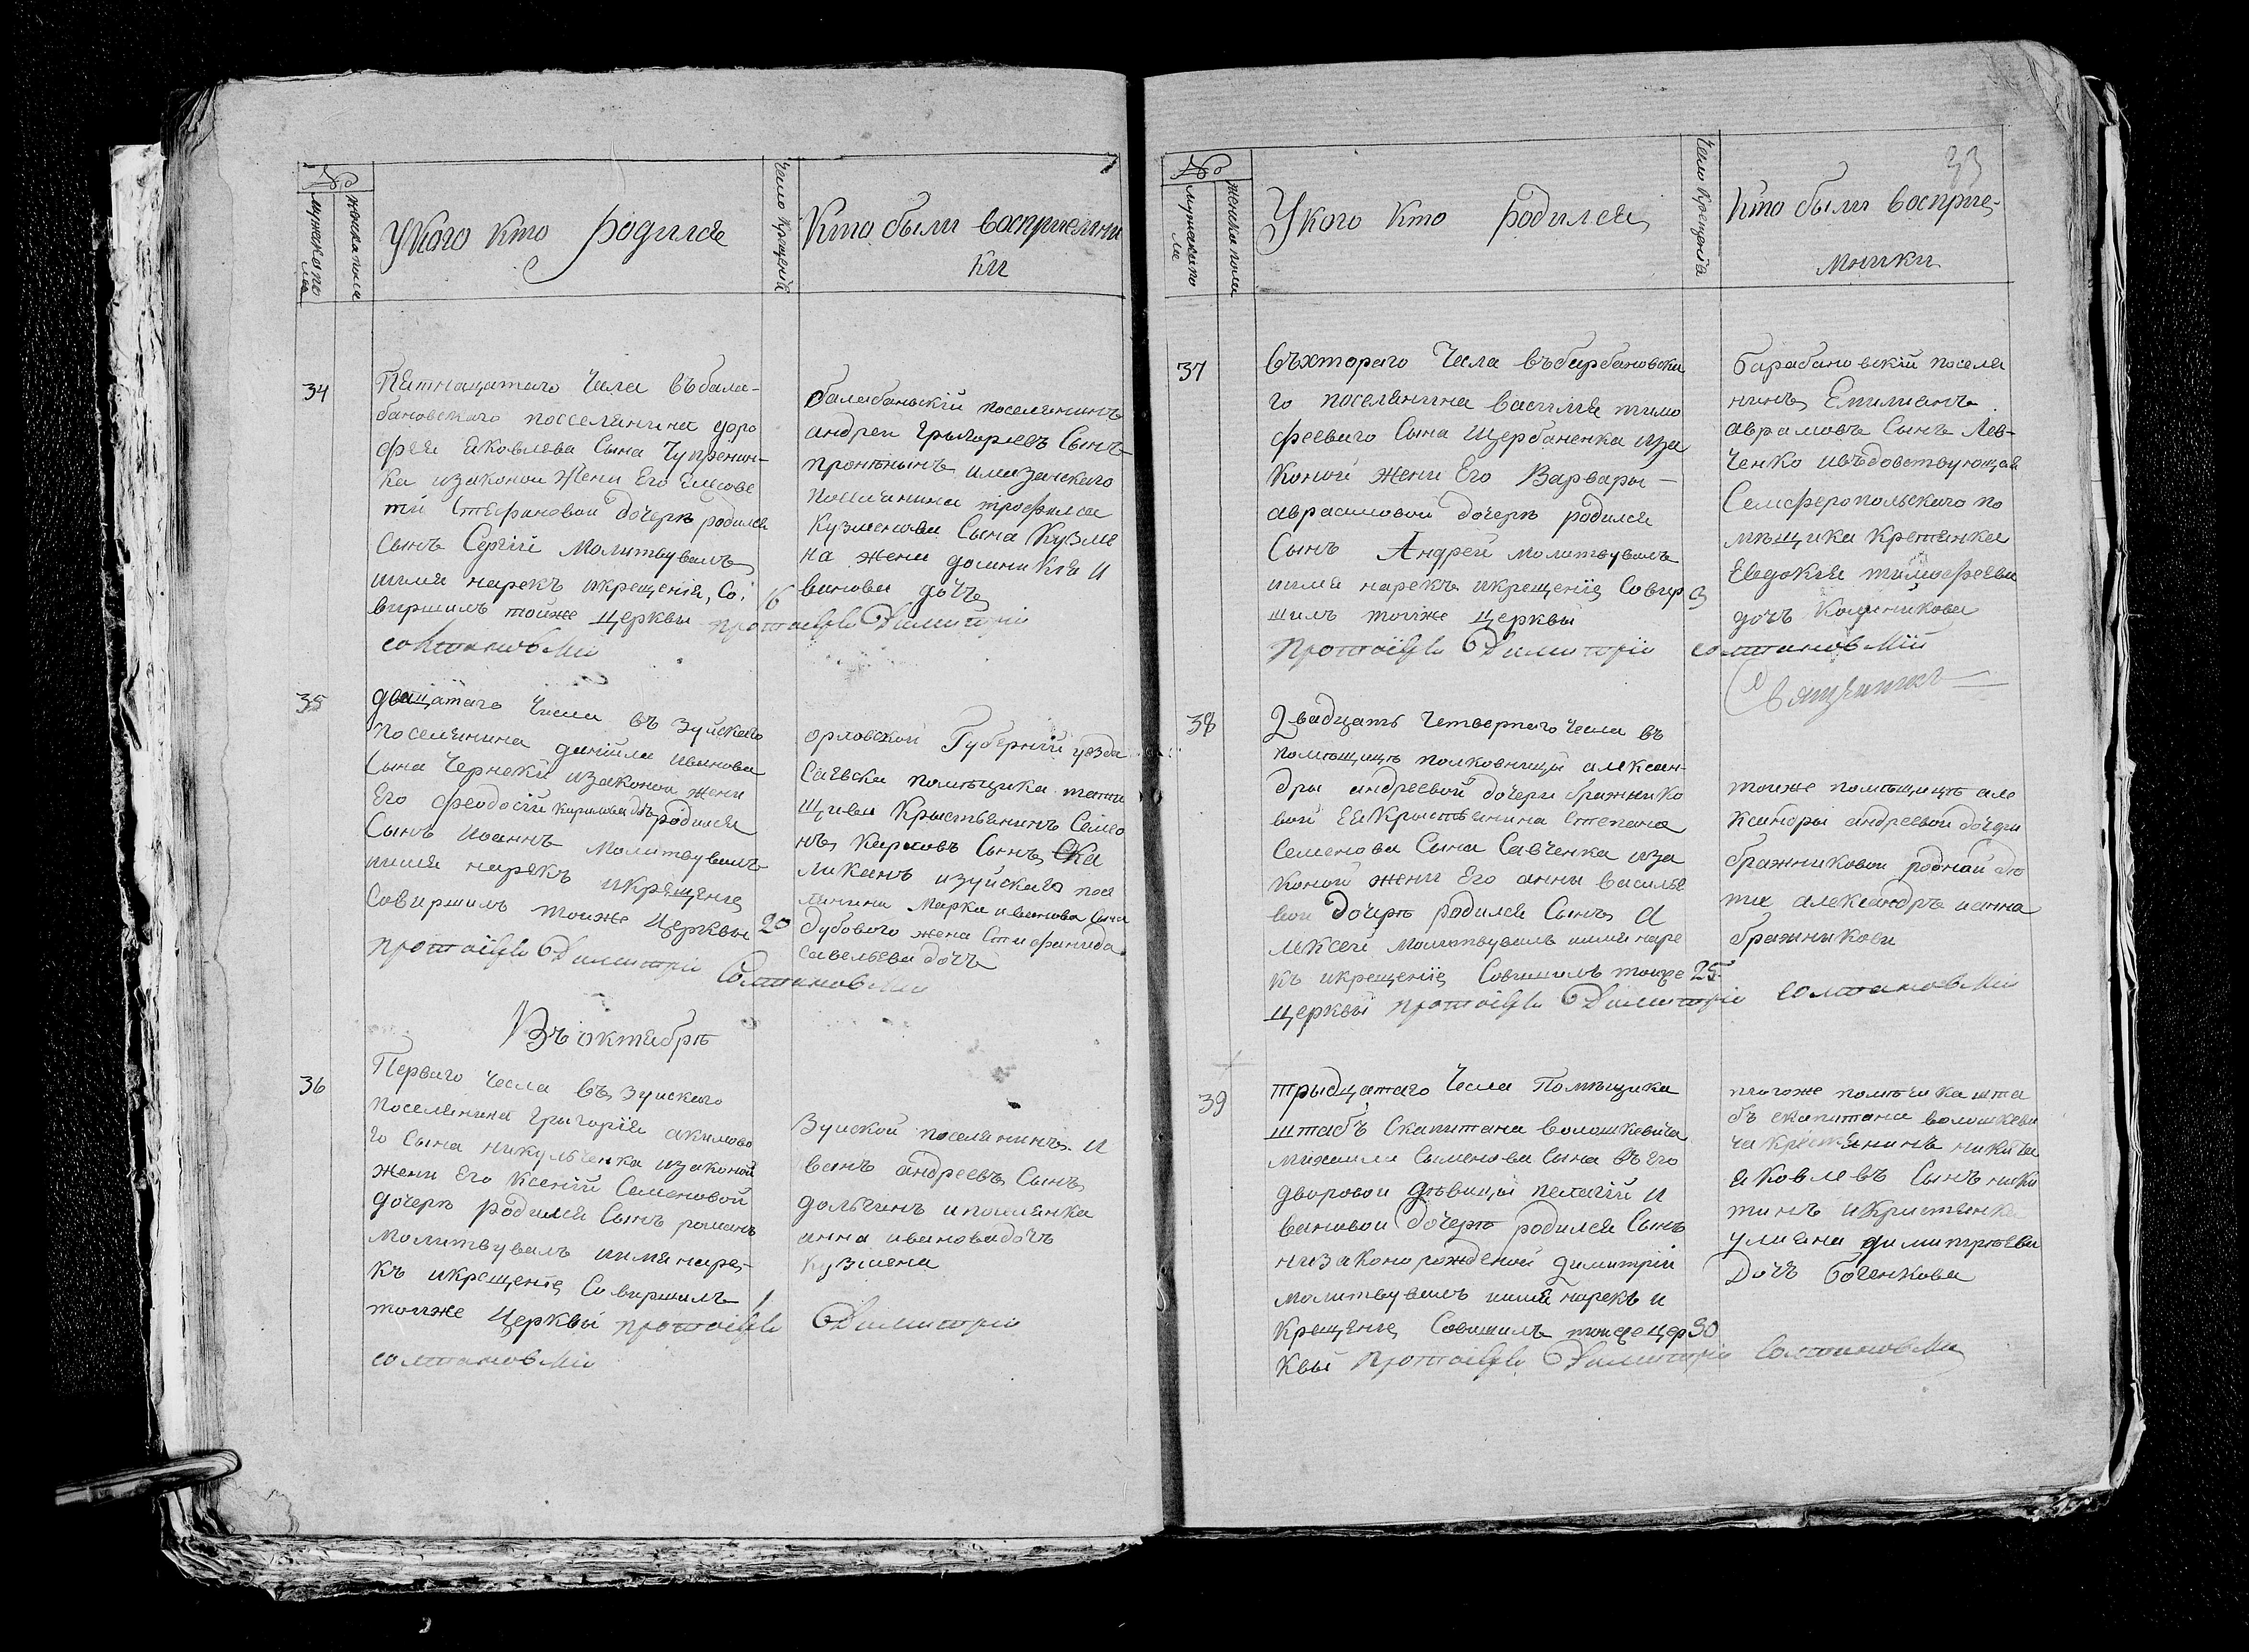 №
мужеска пола
женска пола
Укого кто родился
Число Крещенія
Кто были восприемни
ки
34
Пятнацатаго Чила въбала-
бановского посселянина доро
фея яковлева Сына Чупренин-
ка изаконои Жени Его Елисаве
ти Стефановой дочерѣ родился
Сынъ Сергій Молитвувалъ
имя нарекъ икрещеніе, Со:
виршилъ тойже Церквы
протоіерей Димитрій
16
балабаньскій поселянинъ
андреи Грыгориевъ Сынъ
трофима
Кузменова Сына Кузме
на жени домникія И
ванова дочъ
35
двацатаго Числа въ Зуйского
поселянина даніила иванова
Сына Чернеки изаконои жени
Его феодосіи кирилова дъ родился
Сынъ Иоаннъ Молитвувалъ
имя нарекъ икрещение
Совиршилъ тоиже Церквы
протоіерей Димитрій
20
орловской Губерніи уезда
Сѣвска помѣщика
Крыстьянинъ Семо
нъ Карповъ Сынъ Ска
ликанъ изуйского посе
лянина Марка иванова Сына
Дубового жена Стифанида
Савельева дочъ
Въ октябрѣ
36
Перваго Чесла въ Зуиского
поселянина Григорія акимово
го Сына никульченка изаконой
жени Его Ксеніи Семеновой
дочерѣ родился Сынъ романъ
Молитвувалъ имянаре-
къ икрещение Совиршилъ
тоиже Церквы протоіерей
1
Димитрій
Зуиской поселянинъ И
ванъ андреевъ Сынъ
дольгинъ ипоселянка
анна ивановадочъ
Кузмена
33
№
мужеска по
ла
женска пола
Укого кто родился
Число Крещенія
Кто были восприе-
мники
37
Въхтораго Числа въбарбановски
го поселянина василия тимо
феевиго Сына Щербаненка иза
коной жени Его Варвары
аврасимовой дочерѣ родился
Сынъ Андрей молитвувалъ
имя нарекъ икрещение Совир
шилъ тоиже Церквы
протоіерей Димитрій
3
барабановскій поселя
нинъ Емилианъ
аврамовъ Сынъ Лев-
ченко ивъдовствующая
Семферопольского по
мѣщика Крестянка
Евдокия тимофеева
дочъ Калиникова
Священикъ
38
Двадцать Четвертаго Числа въ
помѣщицѣ полковници алексан-
дры андреевой дочери бражнико
вой ЕяКрыстьянина Степана
Семенова Сына Савченка иза
коной жени Его анни василье
вой дочерѣ родился Сынъ а
лексей молитвувалъ имя наре
къ икрещение Совишилъ тоиже
Церквы протоіерей Димитрій
25
тоиже помѣщицы але
ксандры андреевой дочери
бражниковои роднои дѣ
ти александръ ианна
бражникови
39
трыдцатаго Числа Помѣщика
штабъ Скапитана волошкевича
михаила Семенова Сына въ Его
дворовои дѣвици пелагіи И
вановои дочерѣ родился Сынъ
низаконорожденой димитрій
молитвувалъ имя нарекъ и
Крещение Совишилъ тоиже цер
квы протоіерей Димитрій
30
тогоже помѣщика шта
бъ скапитана волошкеви
ча Крестянинъ никита
яковлевъ Сынъ ники
тинъ иКристянка
улияна димитриева
Дочъ боченкова